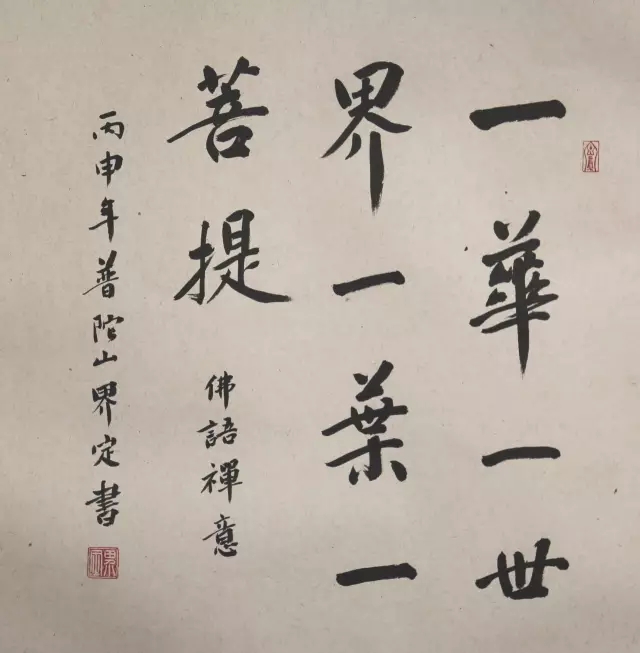 一華一世
界一葉一
菩提
佛語禪意
丙申年普陀山界定書